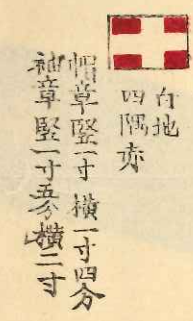 白地
四隅赤
帽章竪一寸横一寸四分
袖章竪一寸五分横二寸